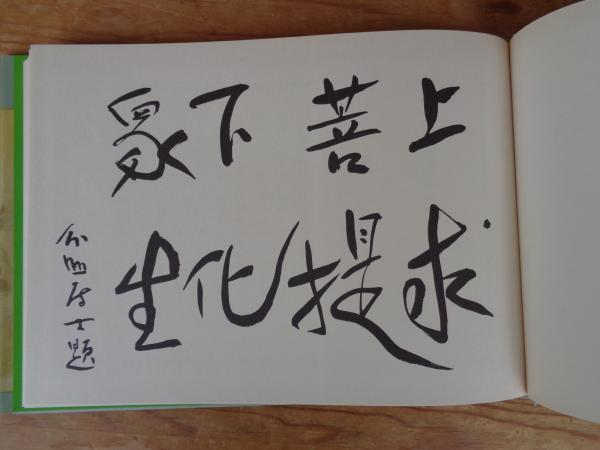 上求
菩提
下化
衆生
居士題